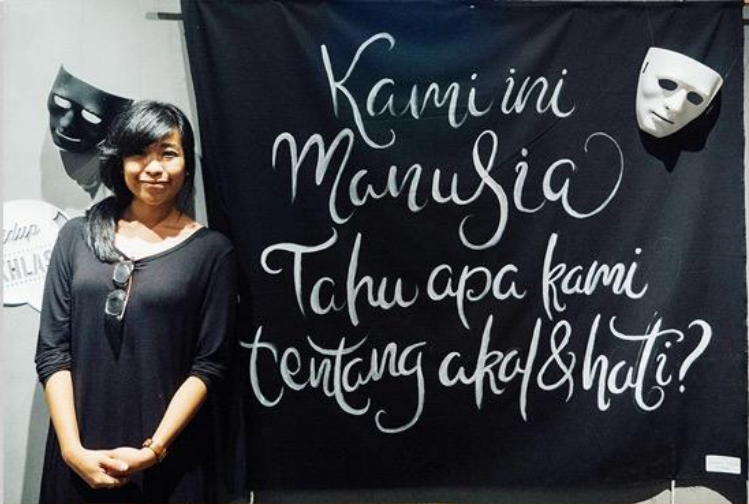 Kami ini
Manusia
Tahu apa kami
tentang akal & hati?